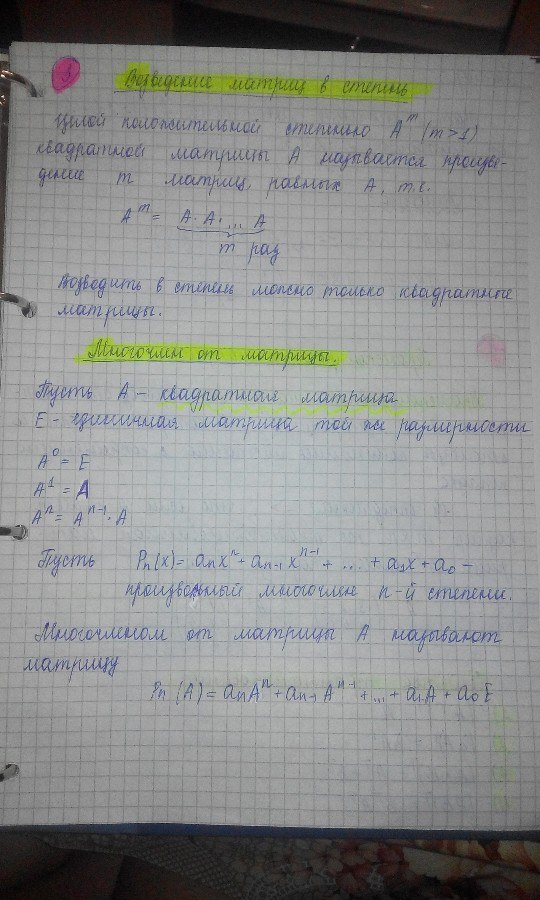 3
Возведение матриц в степень
Целой положительной степенью A^m (m>1)
квадратной матрицы A называется произве-
дение m матриц, равных A, т.е.
A^m = A·A·...A
m раз
Возводить в степень можно только квадратные
матрицы.
Многочлен от матрицы.
Пусть A – квадратная матрица
E - единичная матрица той же размерности
A^0 = E
A^1 = A
A^n = A^{n-1}·A
Пусть P_n(x) = a_n x^n + a_{n-1} x^{n-1} + ... + a_1 x + a_0 –
произвольный многочлен n-й степени.
Многочленом от матрицы A называют
матрицу
P_n(A) = a_n A^n + a_{n-1} A^{n-1} + ... + a_1 A + a_0 E